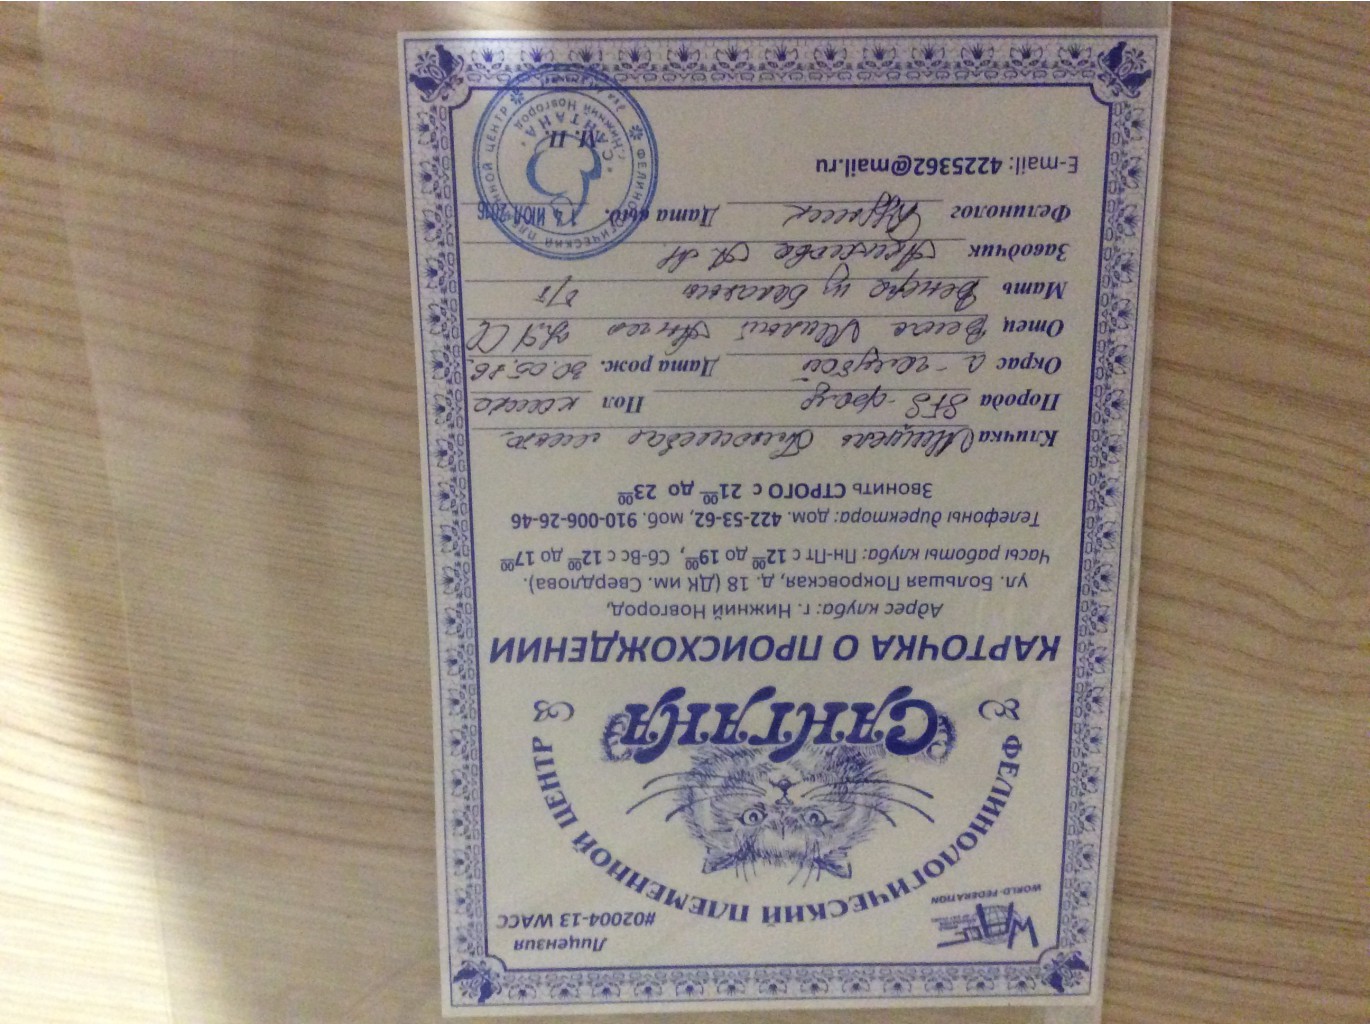 Лицензия
#02004-13 WACC
WORLD-FEDERATION
ФЕЛИНОЛОГИЧЕСКИЙ ПЛЕМЕННОЙ ЦЕНТР
САНТАНА
КАРТОЧКА О ПРОИСХОЖДЕНИИ
Адрес клуба: г. Нижний Новгород,
ул. Большая Покровская, д. 18 (ДК им. Свердлова).
Часы работы клуба: Пн-Пт с 12 00 до 19 00, Сб-Вс с 12 00 до 17 00
Телефоны директора: дом. 422-53-62, моб. 910-006-26-46
Звонить СТРОГО с 21 00 до 23 00
Кличка Мишель Плюшевая
Порода SFS-фолд Пол кошка
Окрас а - голубой Дата рож. 30.05.16
Отец Милый
Мать Венера из б/т
Заводчик А.М.
Фелинолог Дата выд. ИЮЛ 2016
E-mail: 4225362@mail.ru
М.П.
ФЕЛИНОЛОГИЧЕСКИЙ ПЛЕМЕННОЙ ЦЕНТР
"САНТАНА"
г. Нижний Новгород